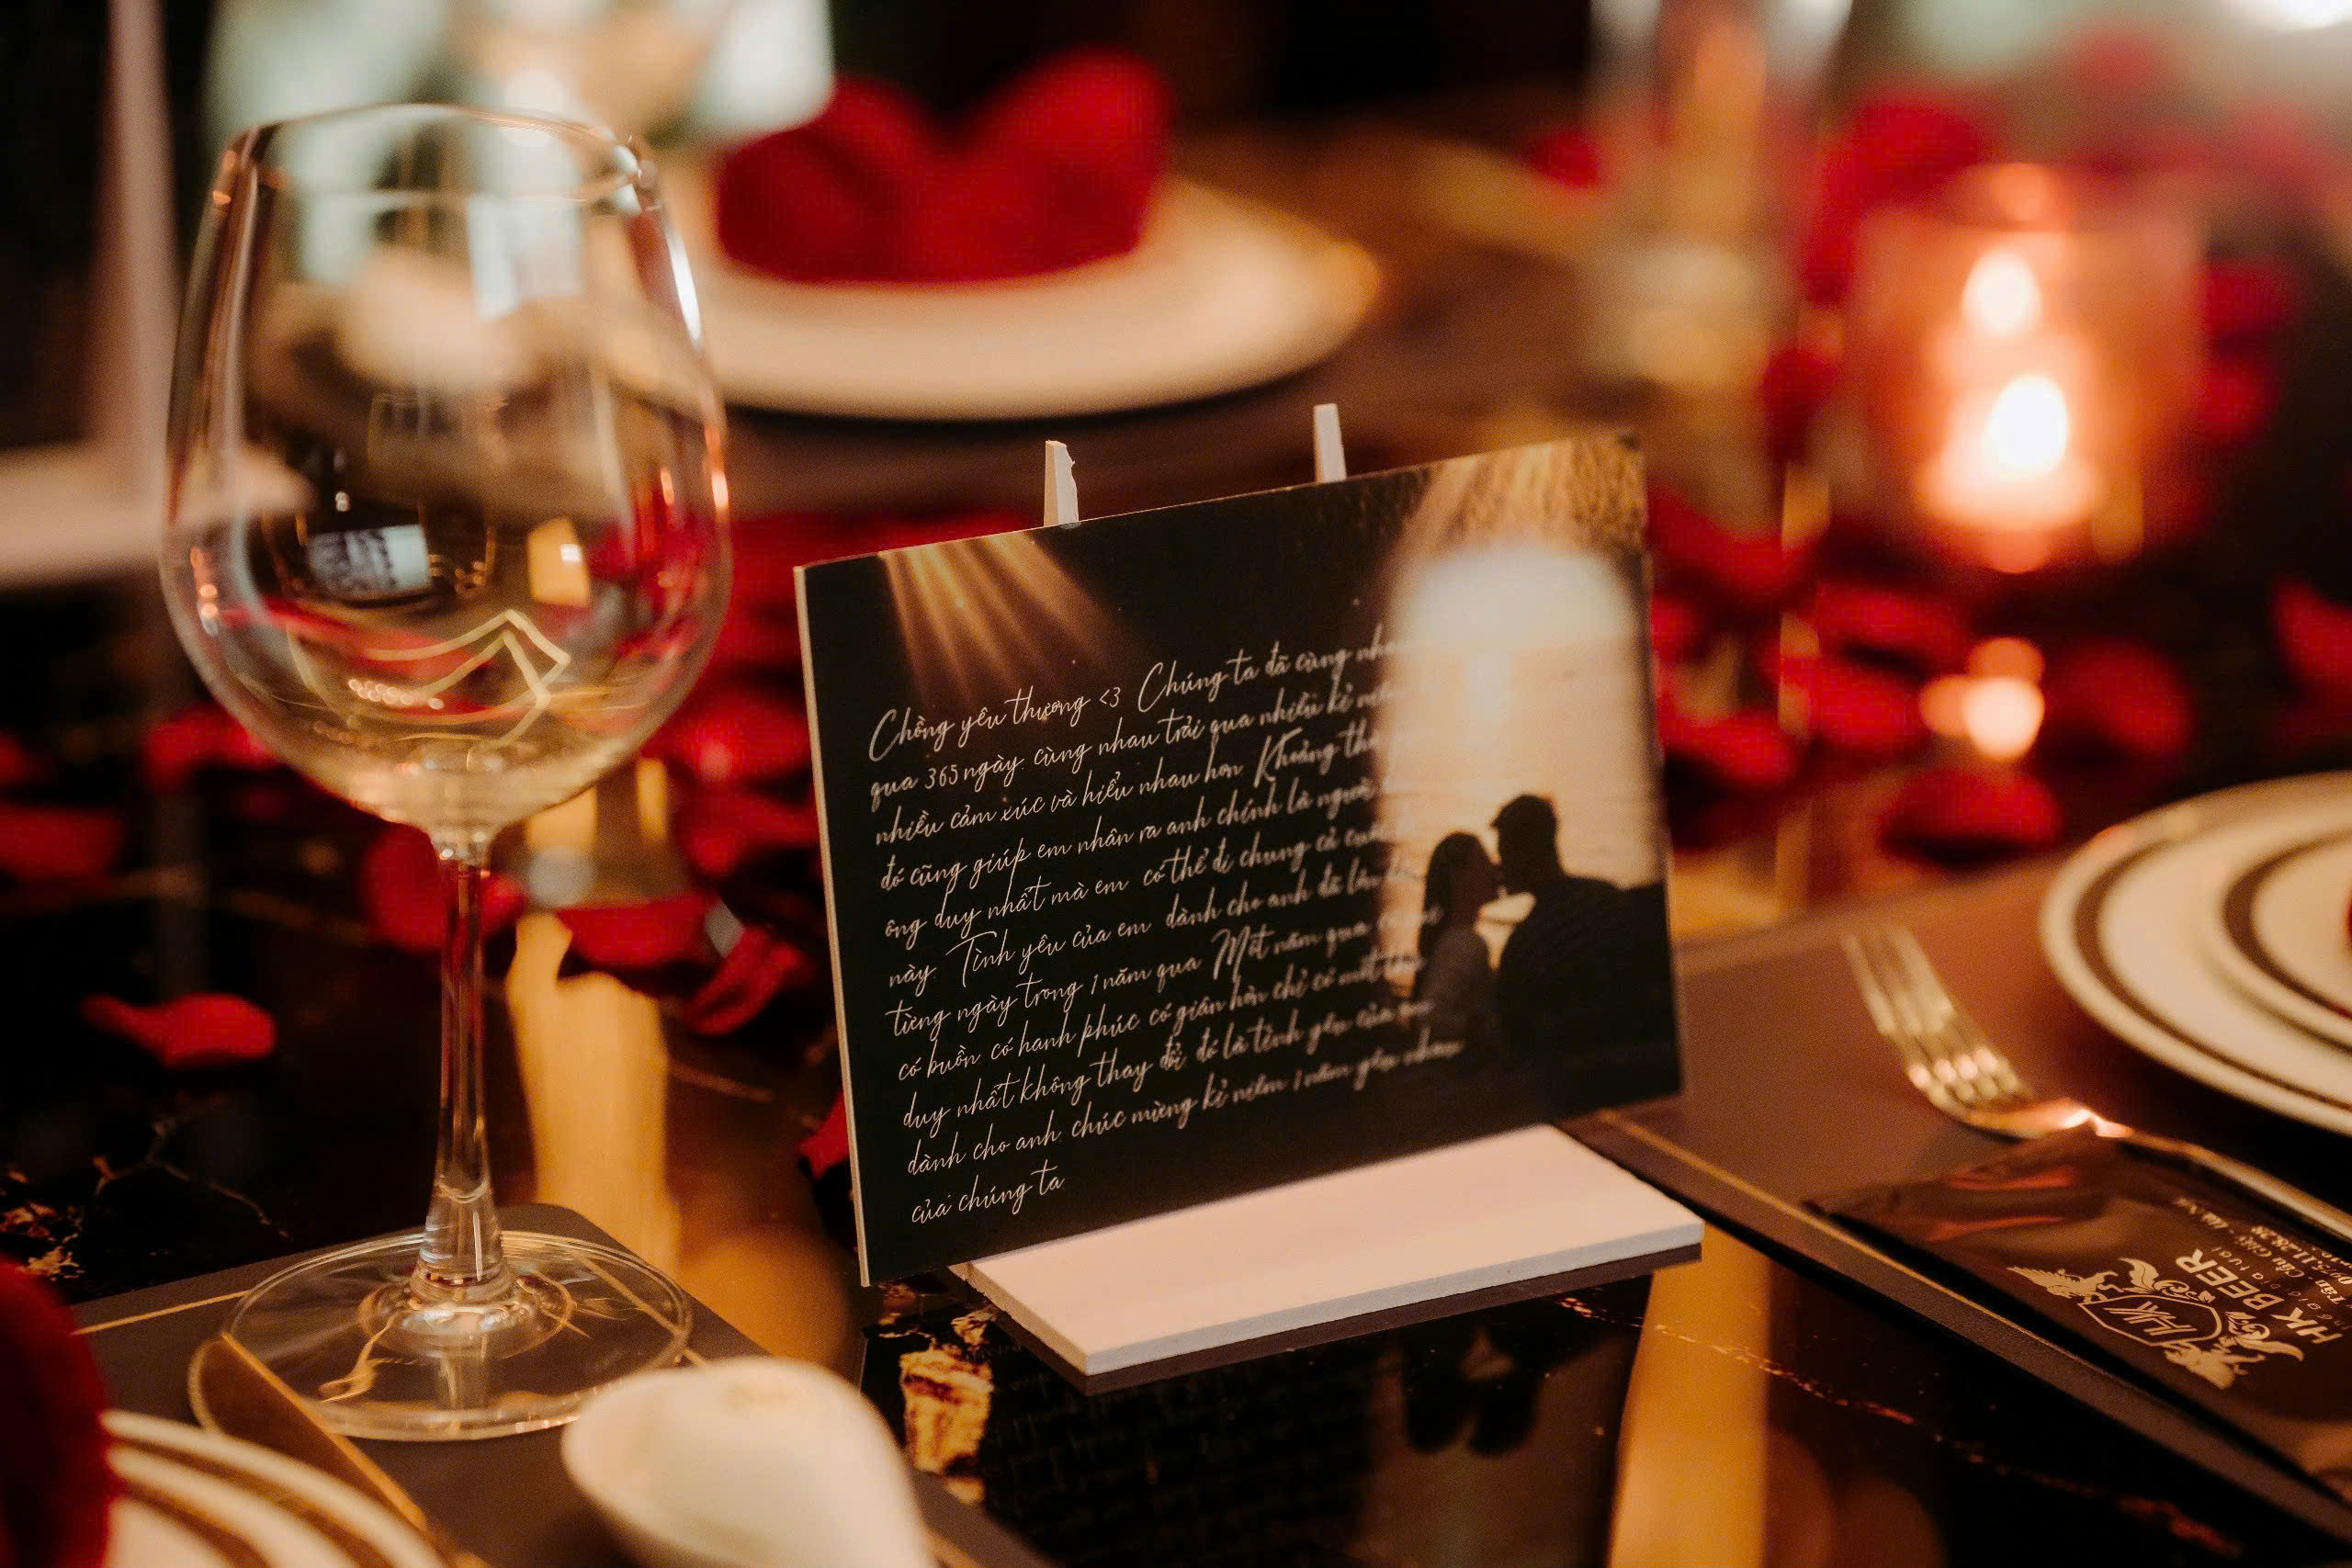 Chồng yêu thương <3 Chúng ta đã cùng
qua 365 ngày. cùng nhau trải qua nhiều kỉ
nhiều cảm xúc và hiểu nhau hơn. Khoảng
đó cũng giúp em nhận ra anh chính là người
ông duy nhất mà em có thể đi chung cả
này. Tình yêu của em dành cho anh đã
từng ngày trong 1 năm qua. Một năm qua
có buồn có hạnh phúc có giận hờn chỉ có một
duy nhất không thay đổi đó là tình yêu của em
dành cho anh. chúc mừng kỉ niệm 1 năm yêu nhau
của chúng ta
HK BEER